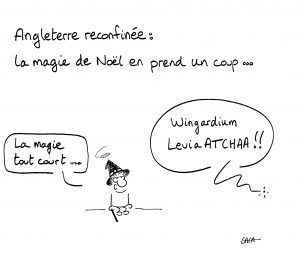 Angleterre reconfinée :
La magie de Noël en prend un coup ...
La magie
tout court ...
Wingardium
Levia ATCHAA !!
GAFA